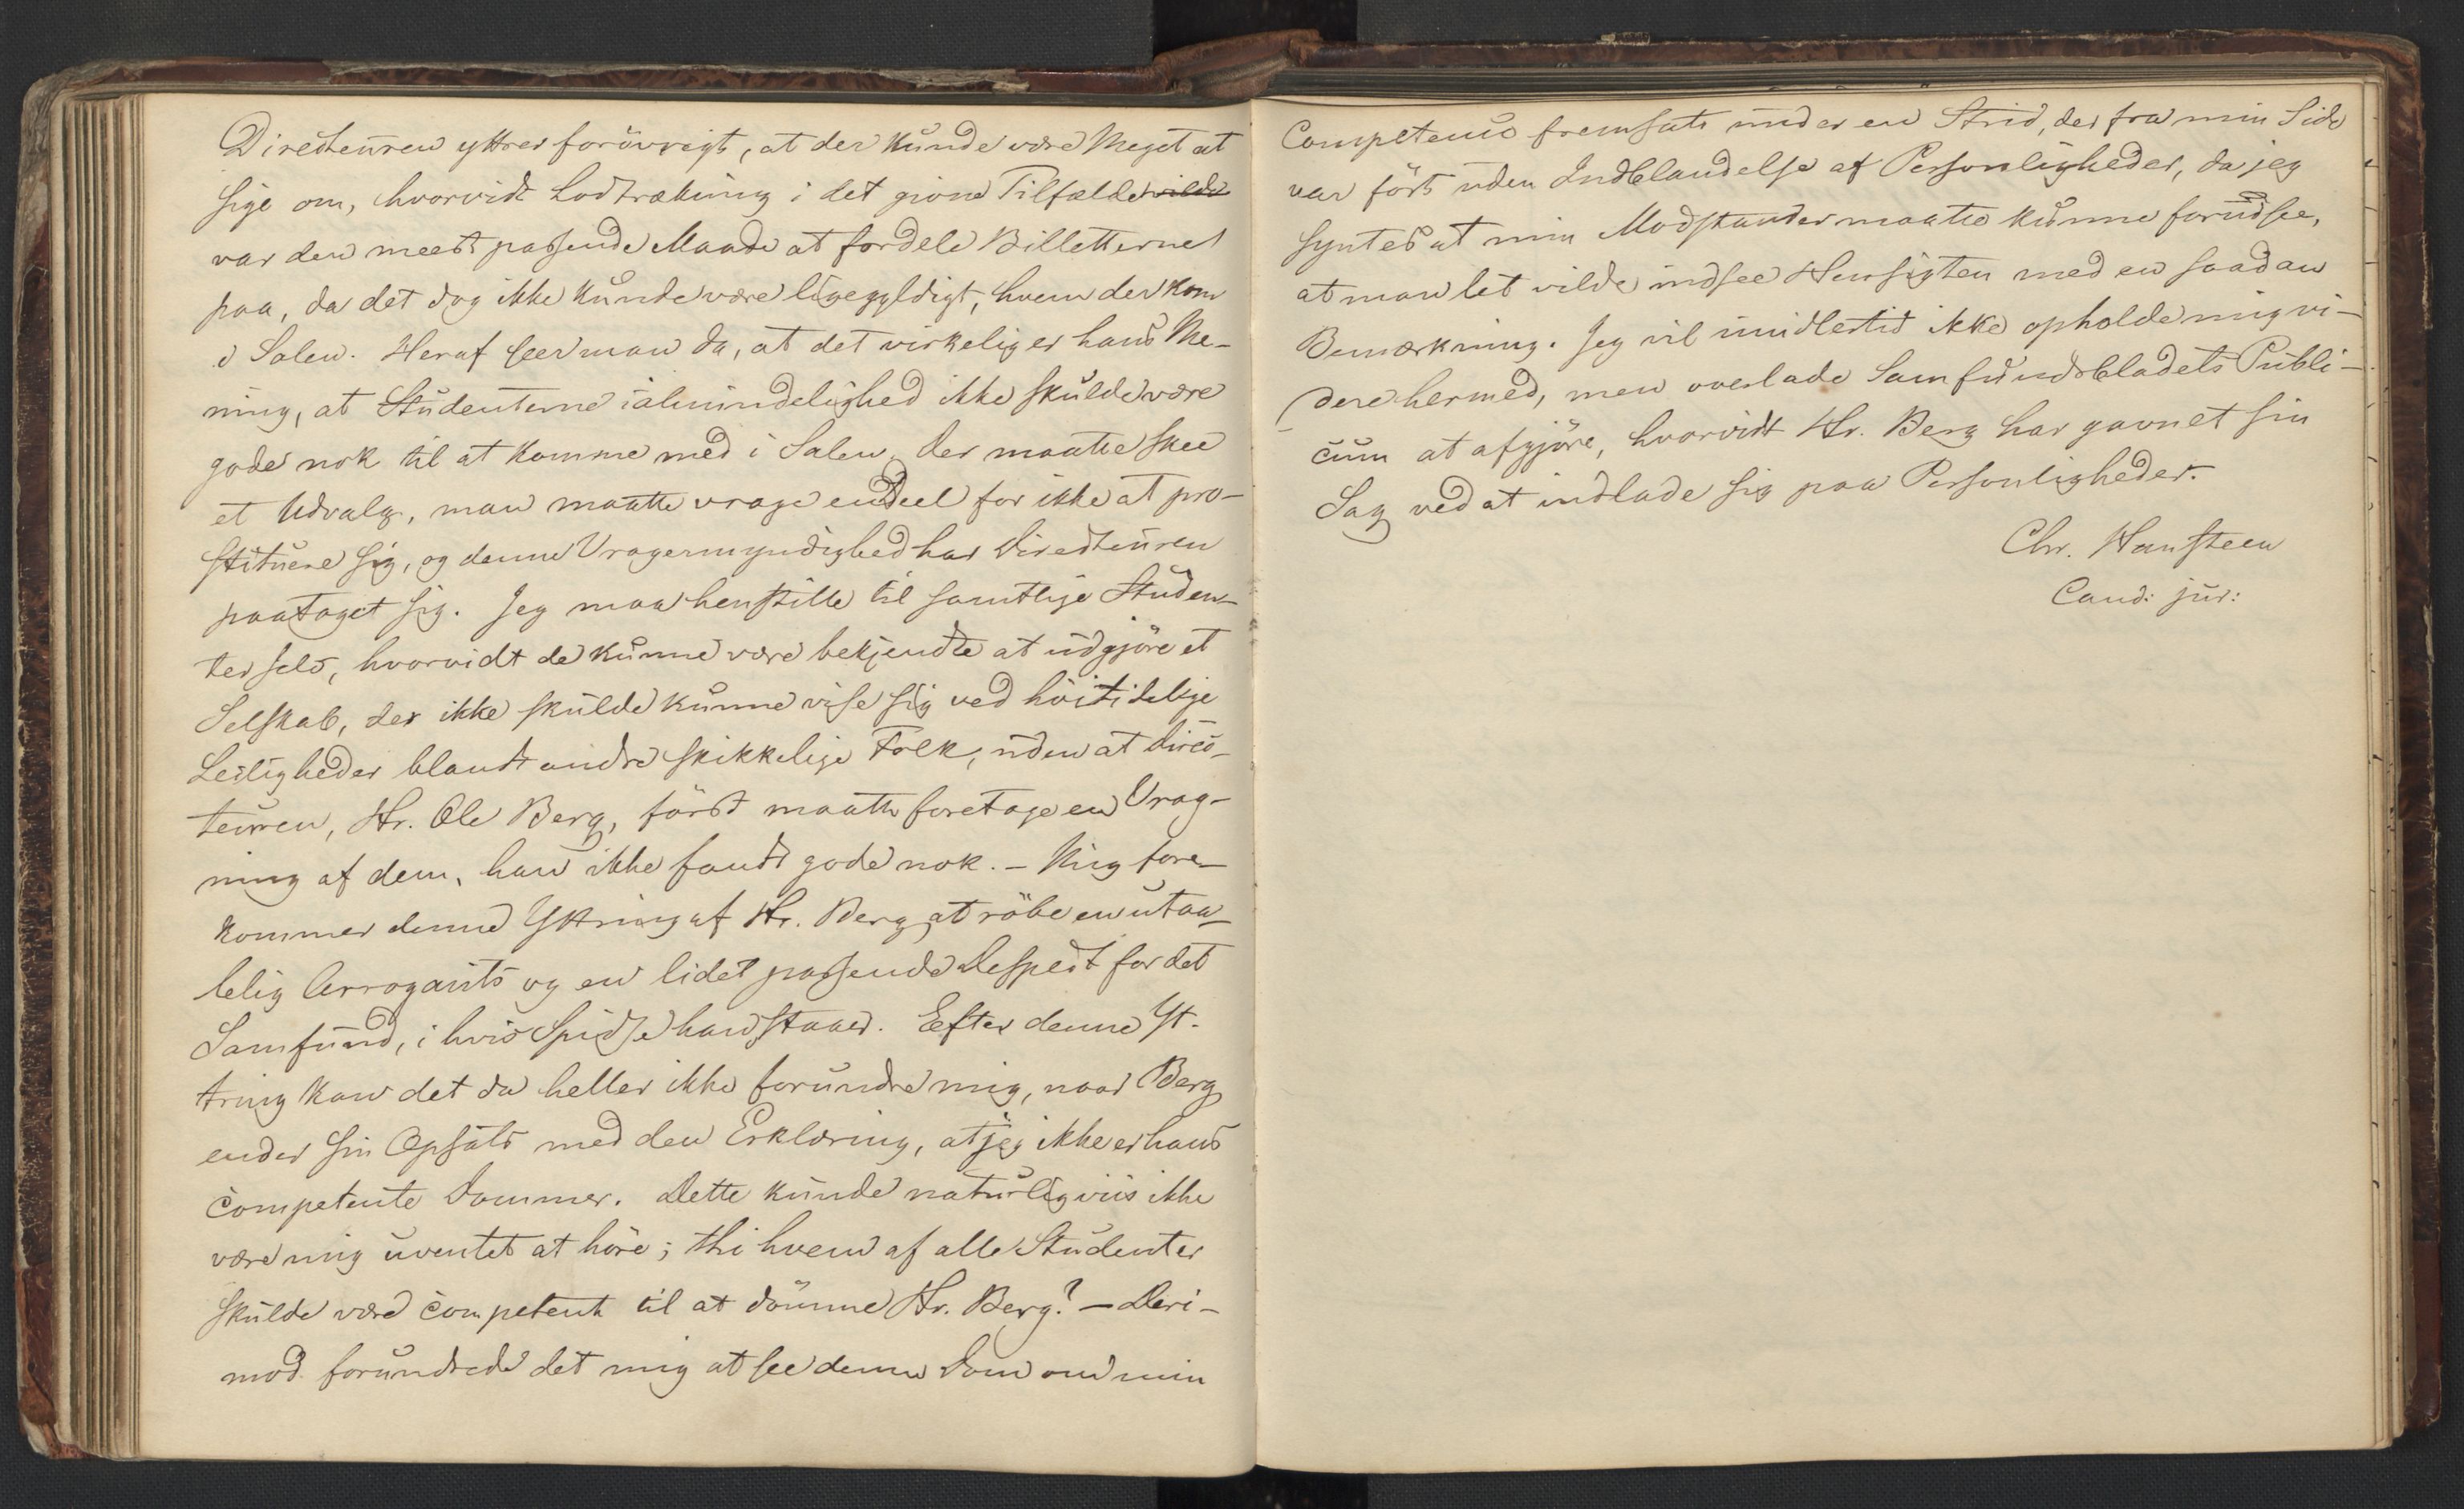 Directeuren yttrer forövrigt, at der kunde være Meget at
sige om, hvorvidt Lodtrækning i det givne Tilfælde vilde
var den meest passende Maade at fordele Billetterne
paa, da det dog ikke kunde være ligegyldigt, hvem der kom
i Salen. Heraf seer man da, at det virkelig er hans Me-
ning, at Studenterne ialmindelighed ikke skulde være
gode nok til at komme med i Salen, der maatte skee
et Udvalg, man maatte vrage endeel for ikke at pro-
stituere sig, og denne Vragermyndighed har Directeuren
paataget sig. Jeg maa henstille til samtlige Studen-
ter selv, hvorvidt de kunne være bekjendte at udgjöre et
Selskab, der ikke skulde kunne vise sig ved höitidelige
Leiligheder blandt andre skikkelige Folk, uden at Direc-
teuren, Hr. Ole Berg, först maatte foretage en Vrag-
ning af dem, han ikke fandt gode nok. - Mig fore-
kommer denne Yttring af Hr. Berg at röbe en utaa-
lelig Arrogants og en lidet passende Despect for det
Samfund, i hvis Spidse han staaer. Efter denne Yt-
tring kan det da heller ikke forundre mig, naar Berg
ender sin Opsats med den Erklæring, at jeg ikke er hans
competente Dommer. Dette kunde naturligviis ikke
være mig uventet at höre; thi hvem af alle Studenter
skulde være competent til at dömme Hr. Berg? - Deri-
mod forundrede det mig at see denne Dom om min
Competence fremsat under en Strid, der fra min Side
var fört uden Indblandelse af Personligheder, da jeg
syntes at min Modstander maatte kunne forudsee,
at man let vilde indsee Hensigten med en saadan
Bemærkning. Jeg vil imidlertid ikke opholde mig vi-
dere hermed, men overlade Samfundsbladets Publi-
cum at afgjöre, hvorvidt Hr. Berg har gavnet sin
Sag ved at indlade sig paa Personligheder.
Chr. Hansteen
Cand: jur: